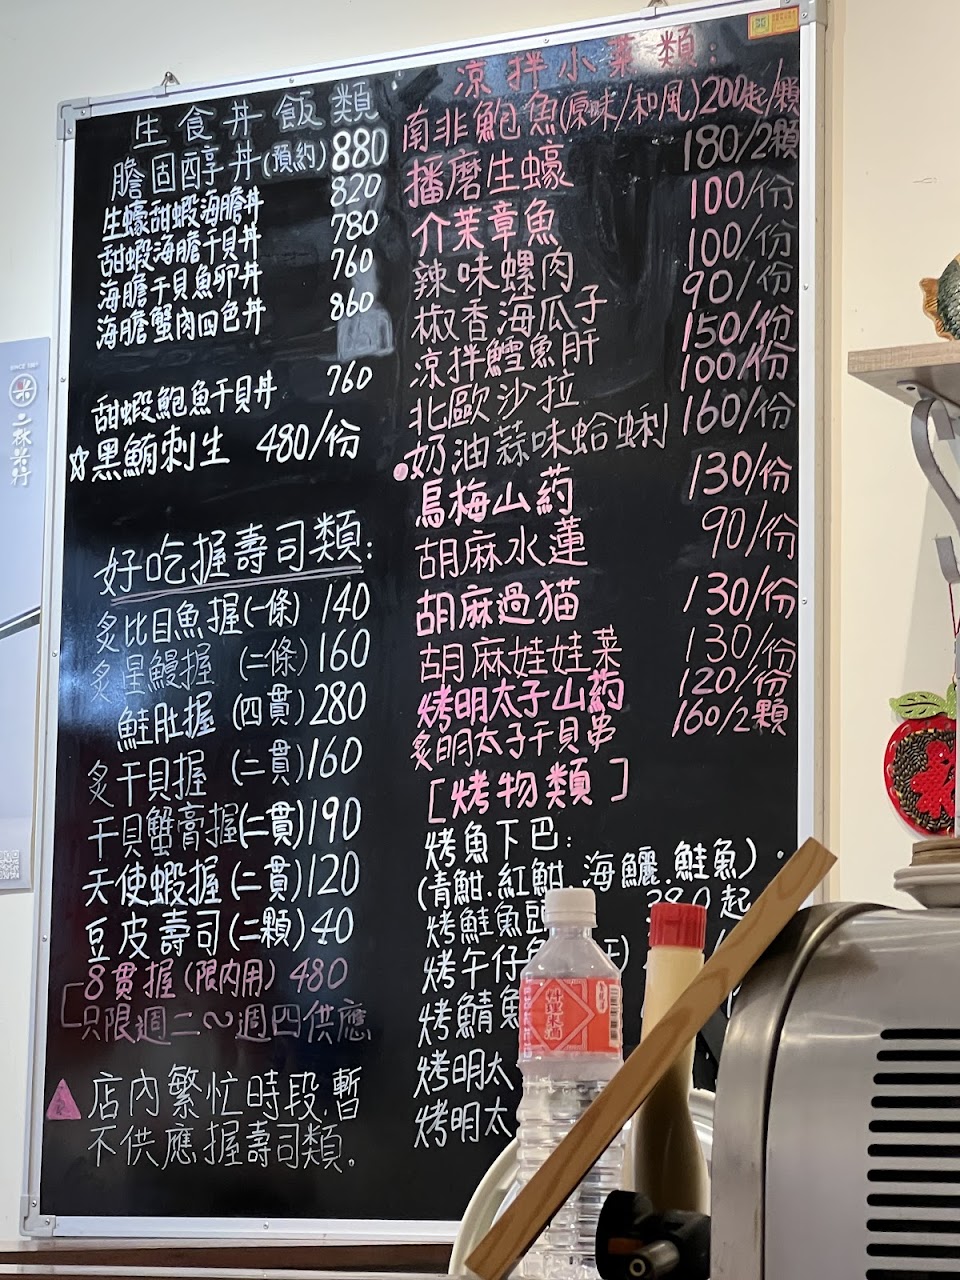 生食丼飯類:
膽固醇丼(預約)880
生蠔甜蝦海膽丼 820
甜蝦海膽干貝丼 780
海膽干貝魚卵丼 760
海膽蟹肉四色丼 860
甜蝦鮑魚干貝丼 760
☆黑鮪刺生 480/份
好吃握壽司類:
炙比目魚握(一條) 140
炙星鰻握 (二條)160
鮭肚握 (四貫)280
炙干貝握 (二貫)160
干貝蟹膏握(二貫)190
天使蝦握(二貫)120
豆皮壽司(二顆)40
8貫握(限內用) 480
只限週二~週四供應
店內繁忙時段.暫
不供應握壽司類。
涼拌小菜類:
南非鮑魚(原味/和風)200起/顆
播磨生蠔 180/2顆
介茉章魚 100/份
辣味螺肉 100/份
椒香海瓜子 90/份
涼拌鱈魚肝 150/份
北歐沙拉 100/份
奶油蒜味蛤蜊 160/份
烏梅山药 130/份
胡麻水蓮 90/份
胡麻過猫 130/份
胡麻娃娃菜 130/份
烤明太子山药 120/份
炙明太子干貝串 160/2顆
[烤物類]
烤魚下巴:
(青魽.紅魽.海鱺.鮭魚)
烤鮭魚頭 380起
烤午仔
烤鯖魚
烤明太
烤明太
二林米行